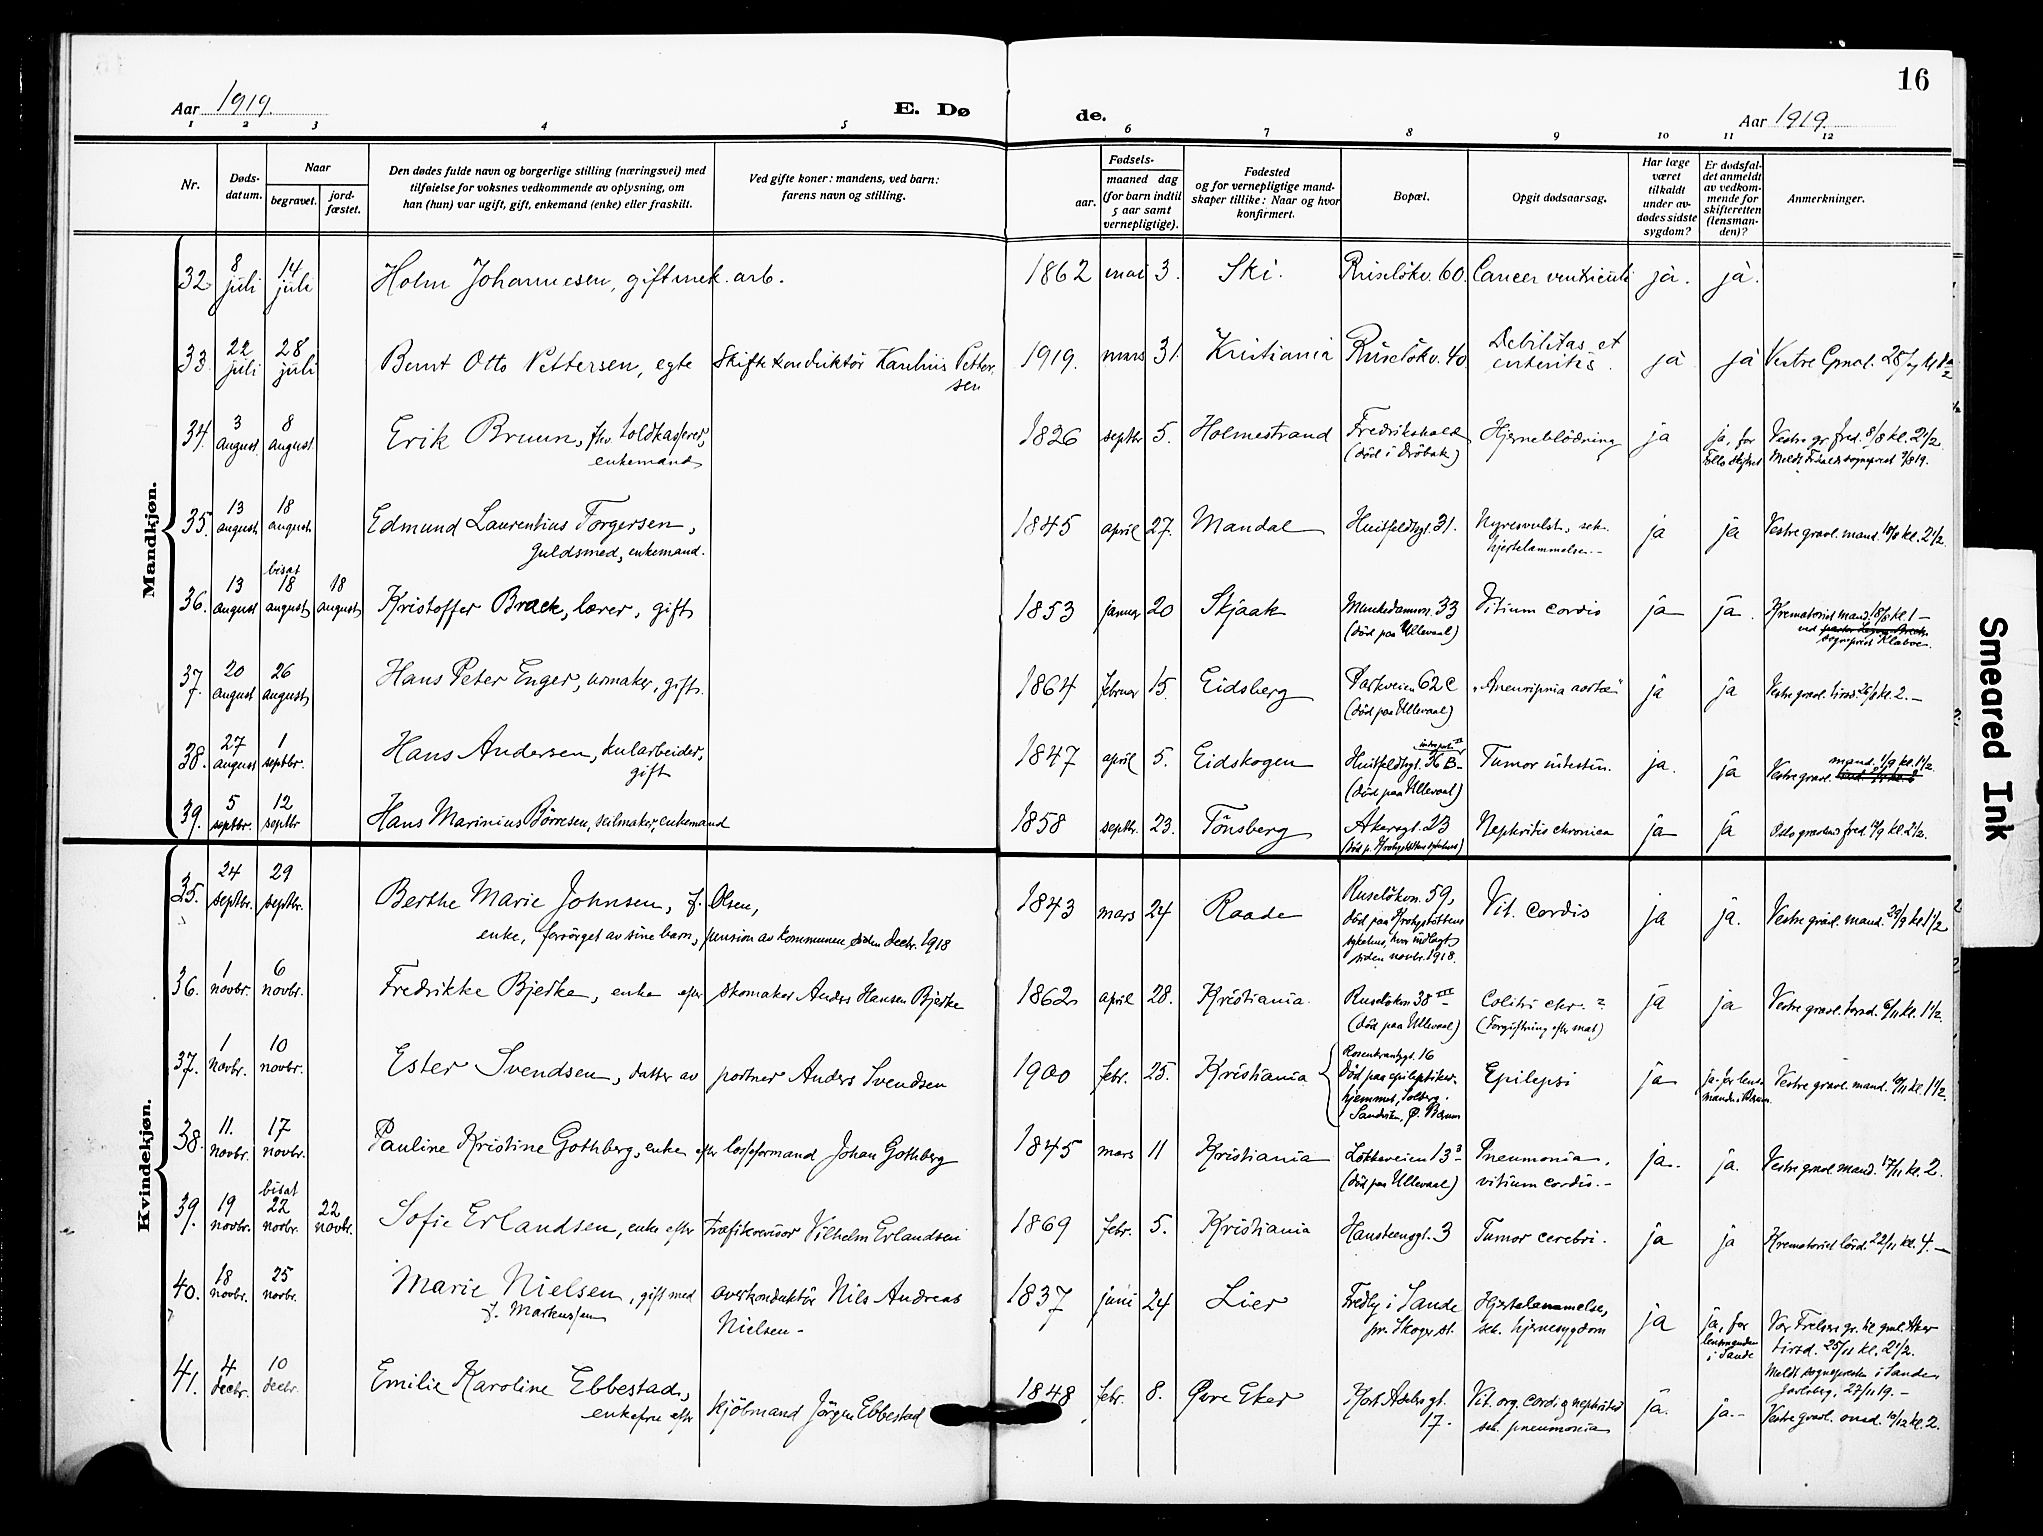 16
Aar 1919.
E. Dø de.
Aar 1919.
1 2 3 4 5 6 7 8 9 10 11 12
Nr.
Døds-
datum.
Naar
begravet.
jord-
fæstet.
Den dødes fulde navn og borgerlige stilling (næringsvei) med
tilføielse for voksnes vedkommende av oplysning, om
han (hun) var ugift, gift, enkemand (enke) eller fraskilt.
Ved gifte koner: mandens, ved barn:
farens navn og stilling.
Fødsels-
aar.
maaned dag
(for barn indtil
5 aar samt
vernepligtige).
Fødested
og for vernepligtige mand-
skaper tillike: Naar og hvor
konfirmert.
Bopæl.
Opgit dødsaarsag.
Har læge
været
tilkaldt
under av-
dødes sidste
sygdom?
Er dødsfal-
det anmeldt
av vedkom-
mende for
skifteretten
(lensman-
den)?
Anmerkninger.
Mandkjøn.
32 8 juli 14 juli Holm Johannesen, gift mek. arb. 1862 mai 3. Ski. Ruseløkv. 60. Cancer ventriculi ja. ja.
33. 22 juli 28 juli Bernt Otto Pettersen, egte Skiftekonduktör Petter-
sen 1919. mars 31. Kristiania Ruseløkv. 40 Debilitas et
enteritis. ja ja Vestre
34. 3 august 8 august Erik Bruun, fhv. toldkasserer,
enkemand 1826 septbr 5. Holmestrand Fredrikshald
(död i Dröbak) Hjerneblödning ja ja, for
Follo Vestre gr. fred. 8/8 kl. 2 1/2
35. 13 august 18 august Edmund Laurentius Torgersen,
guldsmed, enkemand. 1845 april 27. Mandal Huitfeldtsgt. 31. Nyresvulst, sek.
hjertelammelse.- ja ja Vestre gravl. mand. 18/8 kl. 2 1/2.
36. 13 august bisat
18 august 18 august Kristoffer Brack, lærer, gift 1853 januar 20 Skjaak Munkedamsv. 33
(död paa Ullevaal) Vitium cordis ja ja. Krematoriet mand. 18/8 kl. 1 -
ved
sogneprest
37. 20 august 26 august Hans Peter Enger, urmaker, gift. 1864 februar 15. Eidsberg Parkveien 62 C
(död paa Ullevaal) aortæ" ja ja Vestre gravl. tirsd. 26/8 kl. 2. -
38. 27 august 1 septbr. Hans Andersen, kularbeider,
gift 1847 april 5. Eidskogen Huitfeldtsgt.
(död paa Ullevaal) Tumor intestin. ja. ja Vestre gravl. mand. 1/9 kl. 1 1/2.
39. 5 septbr. 12 septbr Hans Marinius Börresen, seilmaker, enkemand 1858 septbr. 23. Tönsberg Akersgt. 23
Nephritis chronica ja ja Oslo gravlund fred. 12/9 kl. 2 1/2.
Kvindekjøn.
35. 24 septbr. 29 septbr. Berthe Marie Johnsen, f. Olsen,
enke, forsörget av sine barn, pension av kommunen siden decbr. 1918 1843 mars 24 Raade Ruselökvn. 59,
död paa Krohgstöttens
sykehus, hvor indlagt
siden novbr. 1918. Vit. cordis ja ja. Vestre gravl. mand. 29/9 kl. 1 1/2
36. 1 novbr. 6 novbr. Fredrikke Bjerke, enke efter skomaker Anders Hansen Bjerke 1862 april 28. Kristiania Ruselökvn 38 III
(död paa Ullevaal) Coliti chr. ?
(Forgiftning efter mat) ja ja Vestre gravl. torsd. 6/11 kl. 1 1/2.
37. 1 novbr. 10 novbr. Ester Svendsen, datter av portner Anders Svendsen 1900 febr. 25. Kristiania Rosenkrantzgt. 16
Död paa epileptiker-
hjemmet, Solberg,
Epilepsi ja ja - for lens-
manden i Bærum. Vestre gravl. mand. 10/11 kl. 1 1/2.
38. 11. novbr. 17 novbr. Pauline Kristine Gothberg, enke efter losseformand Johan Gothberg 1845 mars 11 Kristiania Lökkeveien 13 3
(död paa Ullevaal) Pneumonia,
vitium cordis. - ja. ja. Vestre gravl mand. 17/11 kl. 2.
39. 19 novbr. bisat
22 novbr. 22 novbr. Sofie Erlandsen, enke efter trafikrevisor Vilhelm Erlandsen 1869 febr. 5. Kristiania Hansteensgt. 3 Tumor cerebri. ja ja Krematoriet lörd. 22/11 kl. 4. -
40. 18 novbr. 25 novbr. Marie Nielsen, gift med
f. Markussen overkonduktör Nils Andreas
Nielsen - 1837 juni 24 Lier Fredly i Sande
pr. Skoger st. Hjertelammelse,
sek. hjernesygdom ja ja, for
lensmanden
i Sande Vor Frelsers gr. kl. gml. Aker
tirsd. 25/11 kl. 2 1/2.
Meldt sognepresten i Sande,
Jarlsberg, 27/11 19. -
41. 4 decbr. 10 decbr. Emilie Karoline Ebbestad,
enkefrue efter kjöbmand Jörgen Ebbestad 1848 febr. 8. Øvre Eker Kort Adelers gt.
17. Vit. org. cordis, nephritis
sek. pneumonia ja. ja. - Vestre gravl. onsd. 10/12 kl. 2.
Smeared Ink